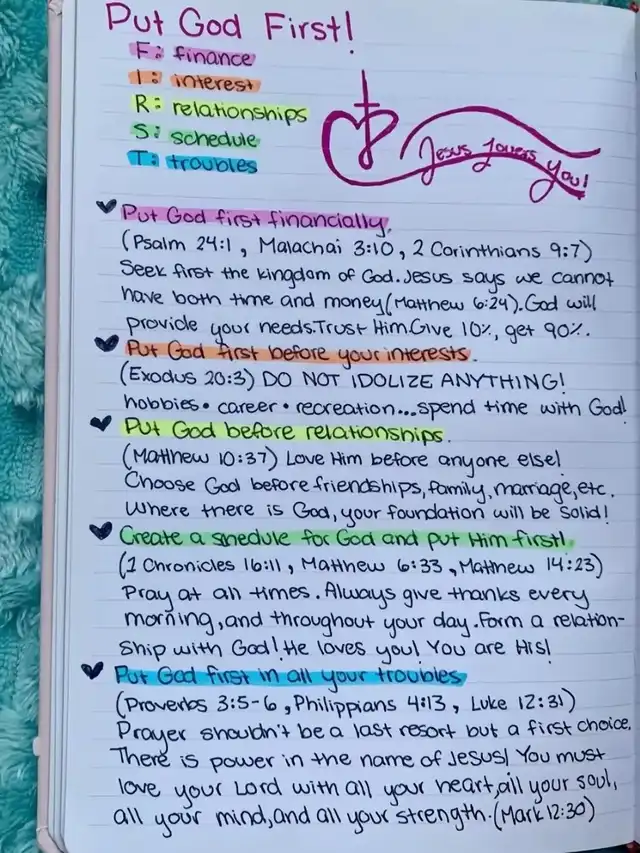 Put God First!
F: finance
I: interest
R: relationships
S: schedule
T: troubles
Jesus Lovers You!
Put God first financially.
(Psalm 24:1, Malachai 3:10, 2 Corinthians 9:7)
Seek first the kingdom of God. Jesus says we cannot
have both time and money (Matthew 6:24). God will
provide your needs. Trust Him. Give 10%, get 90%.
Put God first before your interests.
(Exodus 20:3) DO NOT IDOLIZE ANYTHING!
hobbies • career • recreation... spend time with God!
Put God before relationships.
(Matthew 10:37) Love Him before anyone else!
Choose God before friendships, family, marriage, etc.
Where there is God, your foundation will be solid!
Create a shedule for God and put Him first!
(1 Chronicles 16:11, Matthew 6:33, Matthew 14:23)
Pray at all times. Always give thanks every
morning, and throughout your day. Form a relation-
ship with God! He loves you! You are His!
Put God first in all your troubles
(Proverbs 3:5-6, Philippians 4:13, Luke 12:31)
Prayer shouldn't be a last resort but a first choice.
There is power in the name of Jesus! You must
love your Lord with all your heart, all your soul,
all your mind, and all your strength. (Mark 12:30)